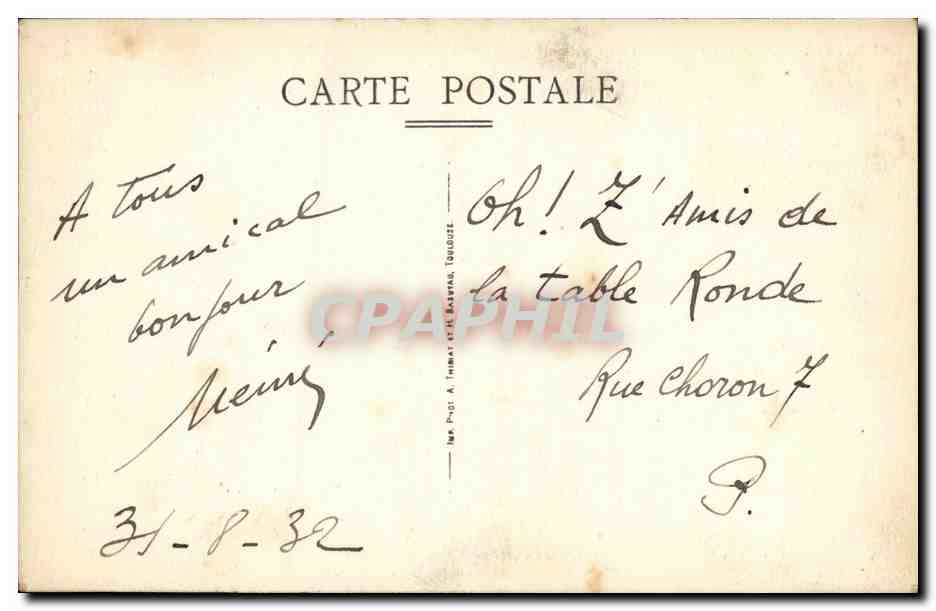 CARTE POSTALE
A tous
un amical
bonjour
Mémé
31-8-32
IMP. PHOT A. THIRIAT ET H. BASUYAU, TOULOUZE
Oh! Z'Amis de
la table Ronde
Rue Choron 7
P.
CPAPHIL